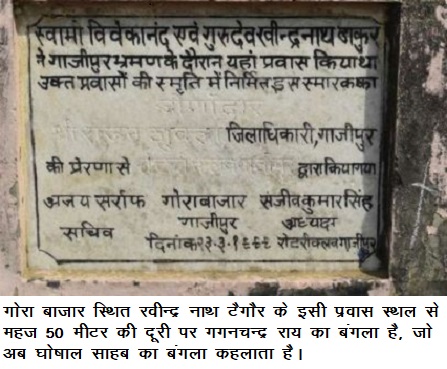 स्वामी विवेकानंद एवं गुरुदेव रवीन्द्रनाथ ठाकुर
ने गाजीपुर भ्रमण के दौरान यहां प्रवास किया था
उक्त प्रवासों की स्मृति में निर्मित इस स्मारक का
जिलाधिकारी, गाजीपुर
की प्रेरणा से द्वारा किया गया
अजय सर्राफ गोराबाजार संजीव कुमार सिंह
सचिव गाजीपुर अध्यक्ष
दिनांक २३.३.१९९९ रोटरी क्लब गाजीपुर
गोरा बाजार स्थित रवीन्द्र नाथ टैगौर के इसी प्रवास स्थल से
महज 50 मीटर की दूरी पर गगनचन्द्र राय का बंगला है, जो
अब घोषाल साहब का बंगला कहलाता है।